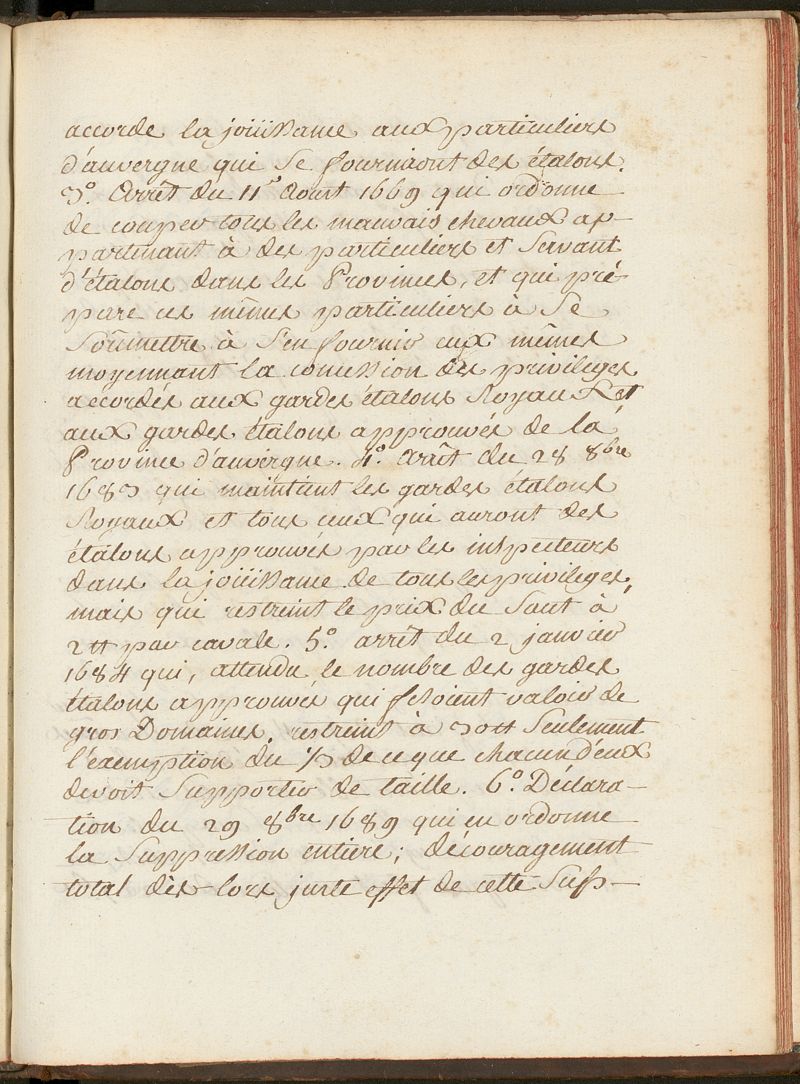 accorde la joüissance aux particuliers
d'auvergne qui se fourniront des étalons.
3.° Arrêt du 11 Aoust 1669 qui ordonne
de couper tous les mauvais chevaux ap-
partenant à des particuliers et servant
d'étalons dans les Provinces, et qui pré-
pare ces mêmes particuliers à se
soûmettre à s'en fournir eux mêmes
moyennant la concession des privileges
accordés aux gardes étalons Royaux et
aux gardes étalons approuvés de la
Province d'auvergne. 4.° Arrêt du 28 8bre
1683 qui maintient les gardes étalons
Royaux et tous ceux qui auront des
étalons approuvés par les inspecteurs
dans la joüissance de tous les privileges,
mais qui restreint le prix du saut à
2tt par cavale. 5.° arrêt du 2 janvier
1684 qui, attendu le nombre des gardes
étalons approuvés qui fesoient valoir de
gros Domaines, restreint à 30tt seulement
l'exemption du 1/3 de ce que chacun d'eux
devoit supporter de taille. 6.° Déclara-
tion du 29 8bre 1689 qui en ordonne
la suppression entiere; découragement
total dès-lors, juste effet de cette sup-